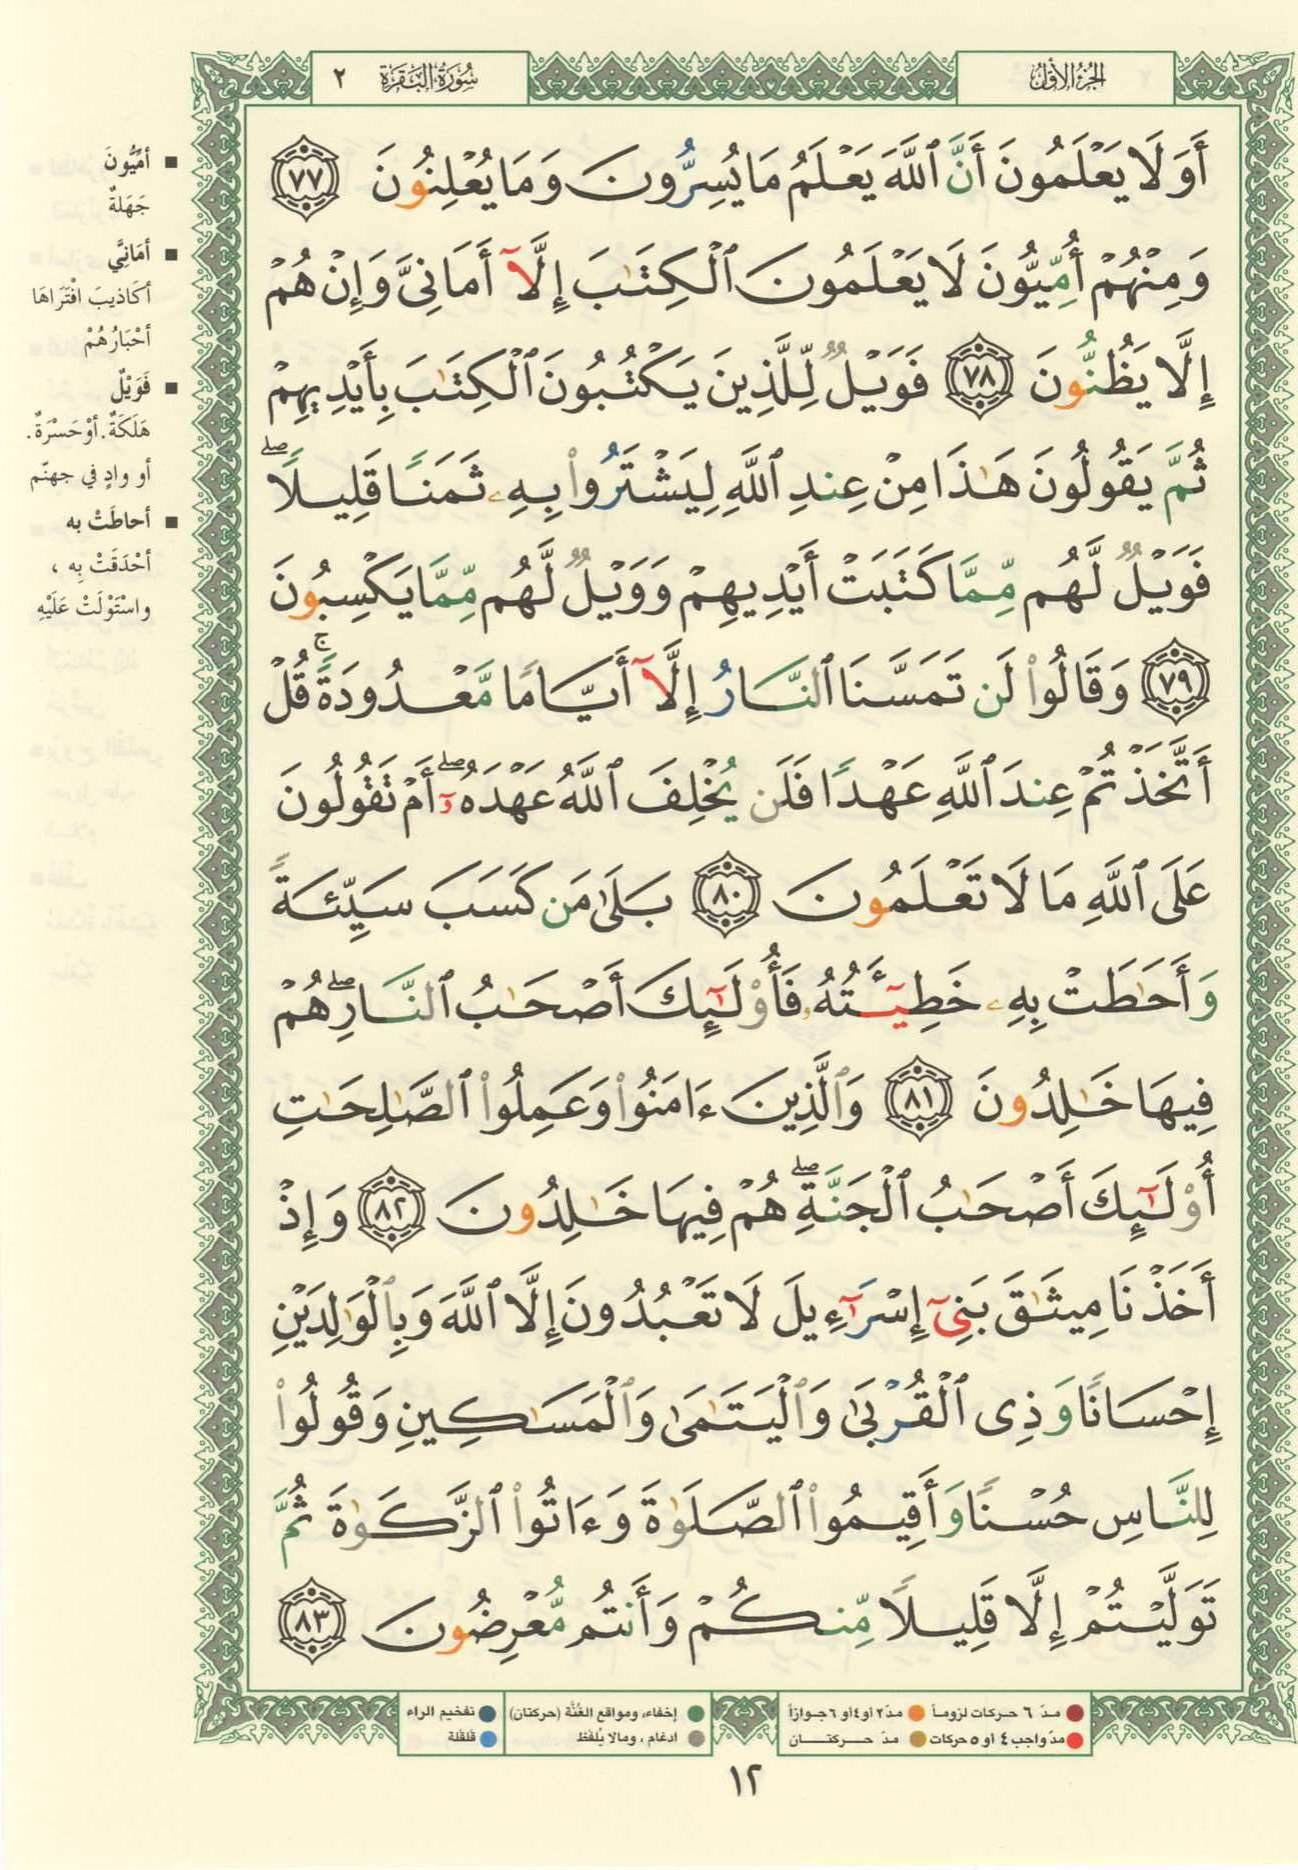 الجزء الأول
سورة البقرة ٢
أَوَلَا يَعْلَمُونَ أَنَّ ٱللَّهَ يَعْلَمُ مَا يُسِرُّونَ وَمَا يُعْلِنُونَ ٧٧
وَمِنْهُمْ أُمِّيُّونَ لَا يَعْلَمُونَ ٱلْكِتَٰبَ إِلَّآ أَمَانِىَّ وَإِنْ هُمْ
إِلَّا يَظُنُّونَ ٧٨ فَوَيْلٌ لِّلَّذِينَ يَكْتُبُونَ ٱلْكِتَٰبَ بِأَيْدِيهِمْ
ثُمَّ يَقُولُونَ هَٰذَا مِنْ عِندِ ٱللَّهِ لِيَشْتَرُوا۟ بِهِۦ ثَمَنًا قَلِيلًا ۖ
فَوَيْلٌ لَّهُم مِّمَّا كَتَبَتْ أَيْدِيهِمْ وَوَيْلٌ لَّهُم مِّمَّا يَكْسِبُونَ
٧٩ وَقَالُوا۟ لَن تَمَسَّنَا ٱلنَّارُ إِلَّآ أَيَّامًا مَّعْدُودَةً ۚ قُلْ
أَتَّخَذْتُمْ عِندَ ٱللَّهِ عَهْدًا فَلَن يُخْلِفَ ٱللَّهُ عَهْدَهُۥٓ ۖ أَمْ تَقُولُونَ
عَلَى ٱللَّهِ مَا لَا تَعْلَمُونَ ٨٠ بَلَىٰ مَن كَسَبَ سَيِّئَةً
وَأَحَٰطَتْ بِهِۦ خَطِيٓـَٔتُهُۥ فَأُو۟لَٰٓئِكَ أَصْحَٰبُ ٱلنَّارِ ۖ هُمْ
فِيهَا خَٰلِدُونَ ٨١ وَٱلَّذِينَ ءَامَنُوا۟ وَعَمِلُوا۟ ٱلصَّٰلِحَٰتِ
أُو۟لَٰٓئِكَ أَصْحَٰبُ ٱلْجَنَّةِ ۖ هُمْ فِيهَا خَٰلِدُونَ ٨٢ وَإِذْ
أَخَذْنَا مِيثَٰقَ بَنِىٓ إِسْرَٰٓءِيلَ لَا تَعْبُدُونَ إِلَّا ٱللَّهَ وَبِٱلْوَٰلِدَيْنِ
إِحْسَانًا وَذِى ٱلْقُرْبَىٰ وَٱلْيَتَٰمَىٰ وَٱلْمَسَٰكِينِ وَقُولُوا۟
لِلنَّاسِ حُسْنًا وَأَقِيمُوا۟ ٱلصَّلَوٰةَ وَءَاتُوا۟ ٱلزَّكَوٰةَ ثُمَّ
تَوَلَّيْتُمْ إِلَّا قَلِيلًا مِّنكُمْ وَأَنتُم مُّعْرِضُونَ ٨٣
■ أمِّيُّونَ
جَهَلةٌ
■ أمَانِيَّ
أكَاذيبَ افْتَرَاهَا
أحْبَارُهُمْ
■ فَوَيْلٌ
هَلَكَةٌ. أوْ حَسْرَةٌ.
أو وادٍ في جهنّم
■ أحاطَتْ به
أحْدَقَتْ بِه ،
واسْتَوْلَتْ عَلَيْهِ
مدّ ٦ حركات لزوماً
مدّ ٢ أو ٤ أو ٦ جوازاً
إخفاء، ومواقع الغُنَّة (حركتان)
تفخيم الراء
مدّ واجب ٤ أو ٥ حركات
مدّ حركتان
ادغام ، ومالا يُلفَظ
قلقلة
١٢